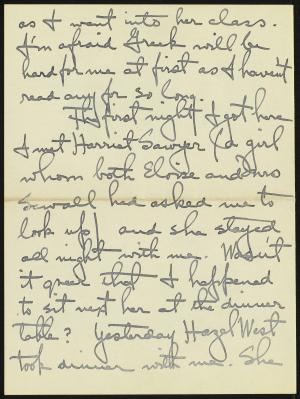 as I went into her class.
I'm afraid Greek will be
hard for me at first as I haven't
read any for so long.
The first night I got here
I met Harriet Sawyer (a girl
whom both Eloise and Mrs
Sewall had asked me to
look up) and she stayed
all night with me. Wasn't
it queer that I happened
to sit next her at the dinner
table? Yesterday Hazel West
took dinner with me. She